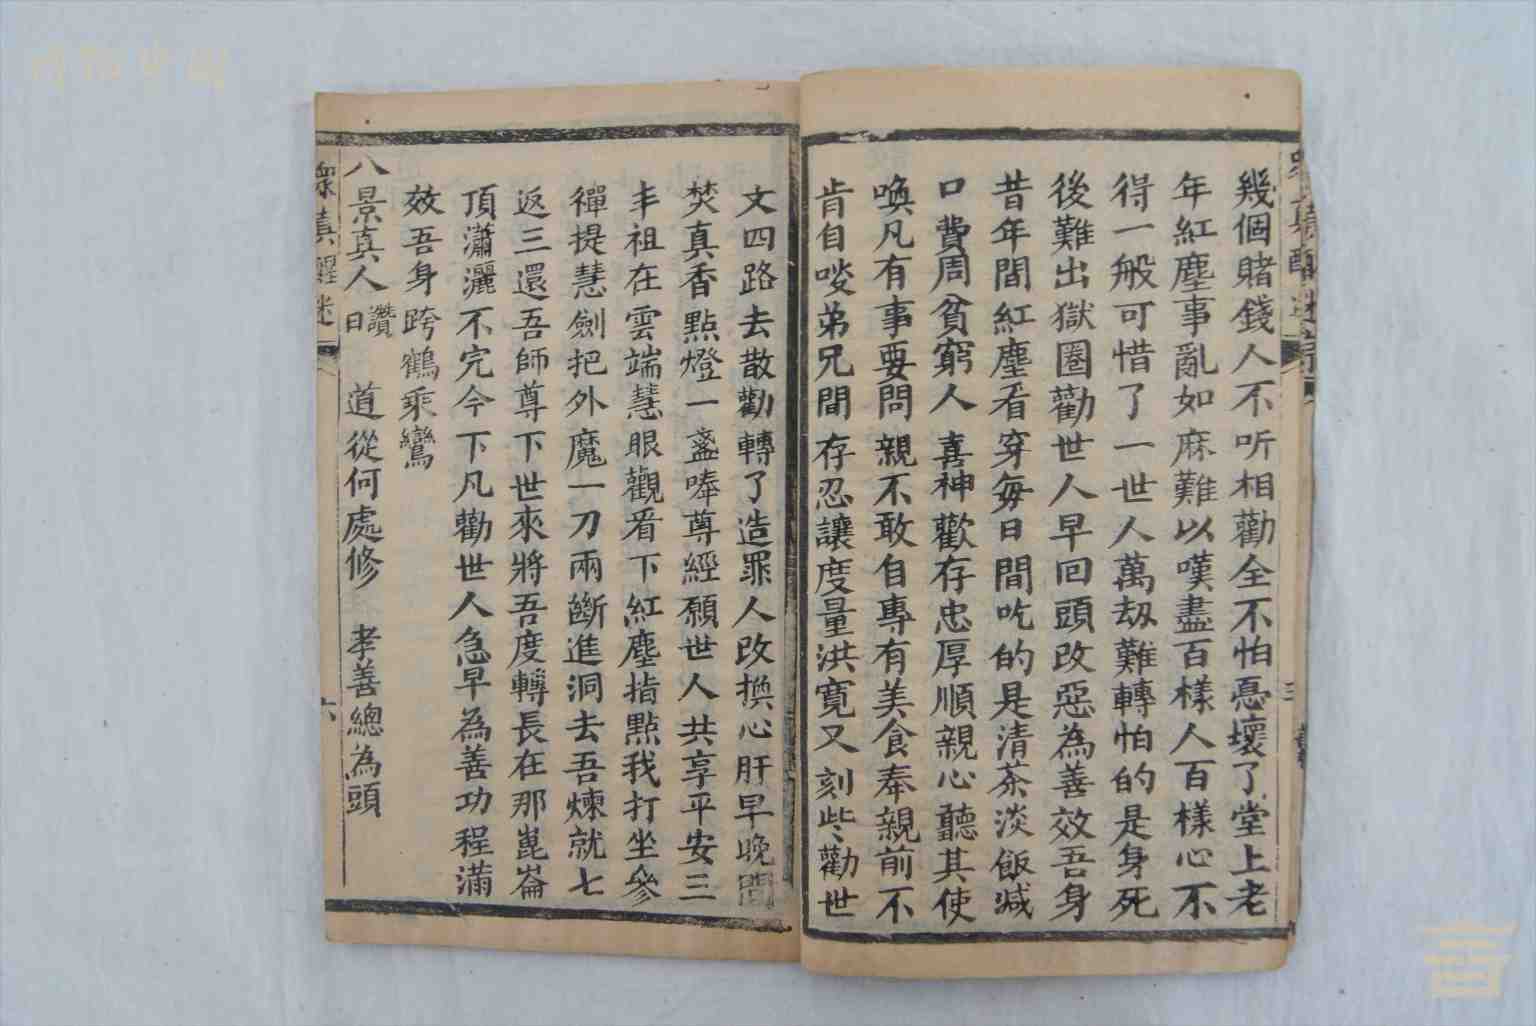 幾個賭錢人不听相勸全不怕惪壞了堂上老
年紅塵事亂如麻難以嘆盡百樣人百樣心不
得一般可惜了一世人萬劫難轉怕的是身死
後難出獄圈勸世人早回頭改惡為善效吾身
昔年間紅塵看穿每日間吃的是清茶淡飯減
口費周貧窮人喜神歡存忠厚順親心聽其使
喚凡有事要問親不敢自專有美食奉親前不
肯自唆弟兄間存忍讓度量洪寬又刻些勸世
文四路去散勸轉了造罪人改換心肝早晚間
焚真香點燈一盞唪尊經願世人共享平安三
丰祖在雲端慧眼觀看下紅塵指點我打坐參
禪提慧劍把外魔一刀兩斷進洞去吾煉就七
返三還吾師尊下世來將吾度轉長在那崑崙
頂瀟灑不完今下凡勸世人急早為善功程滿
效吾身跨鶴乘鸞
八景真人讚曰 道從何處修 孝善總為頭
眾真醒迷
六